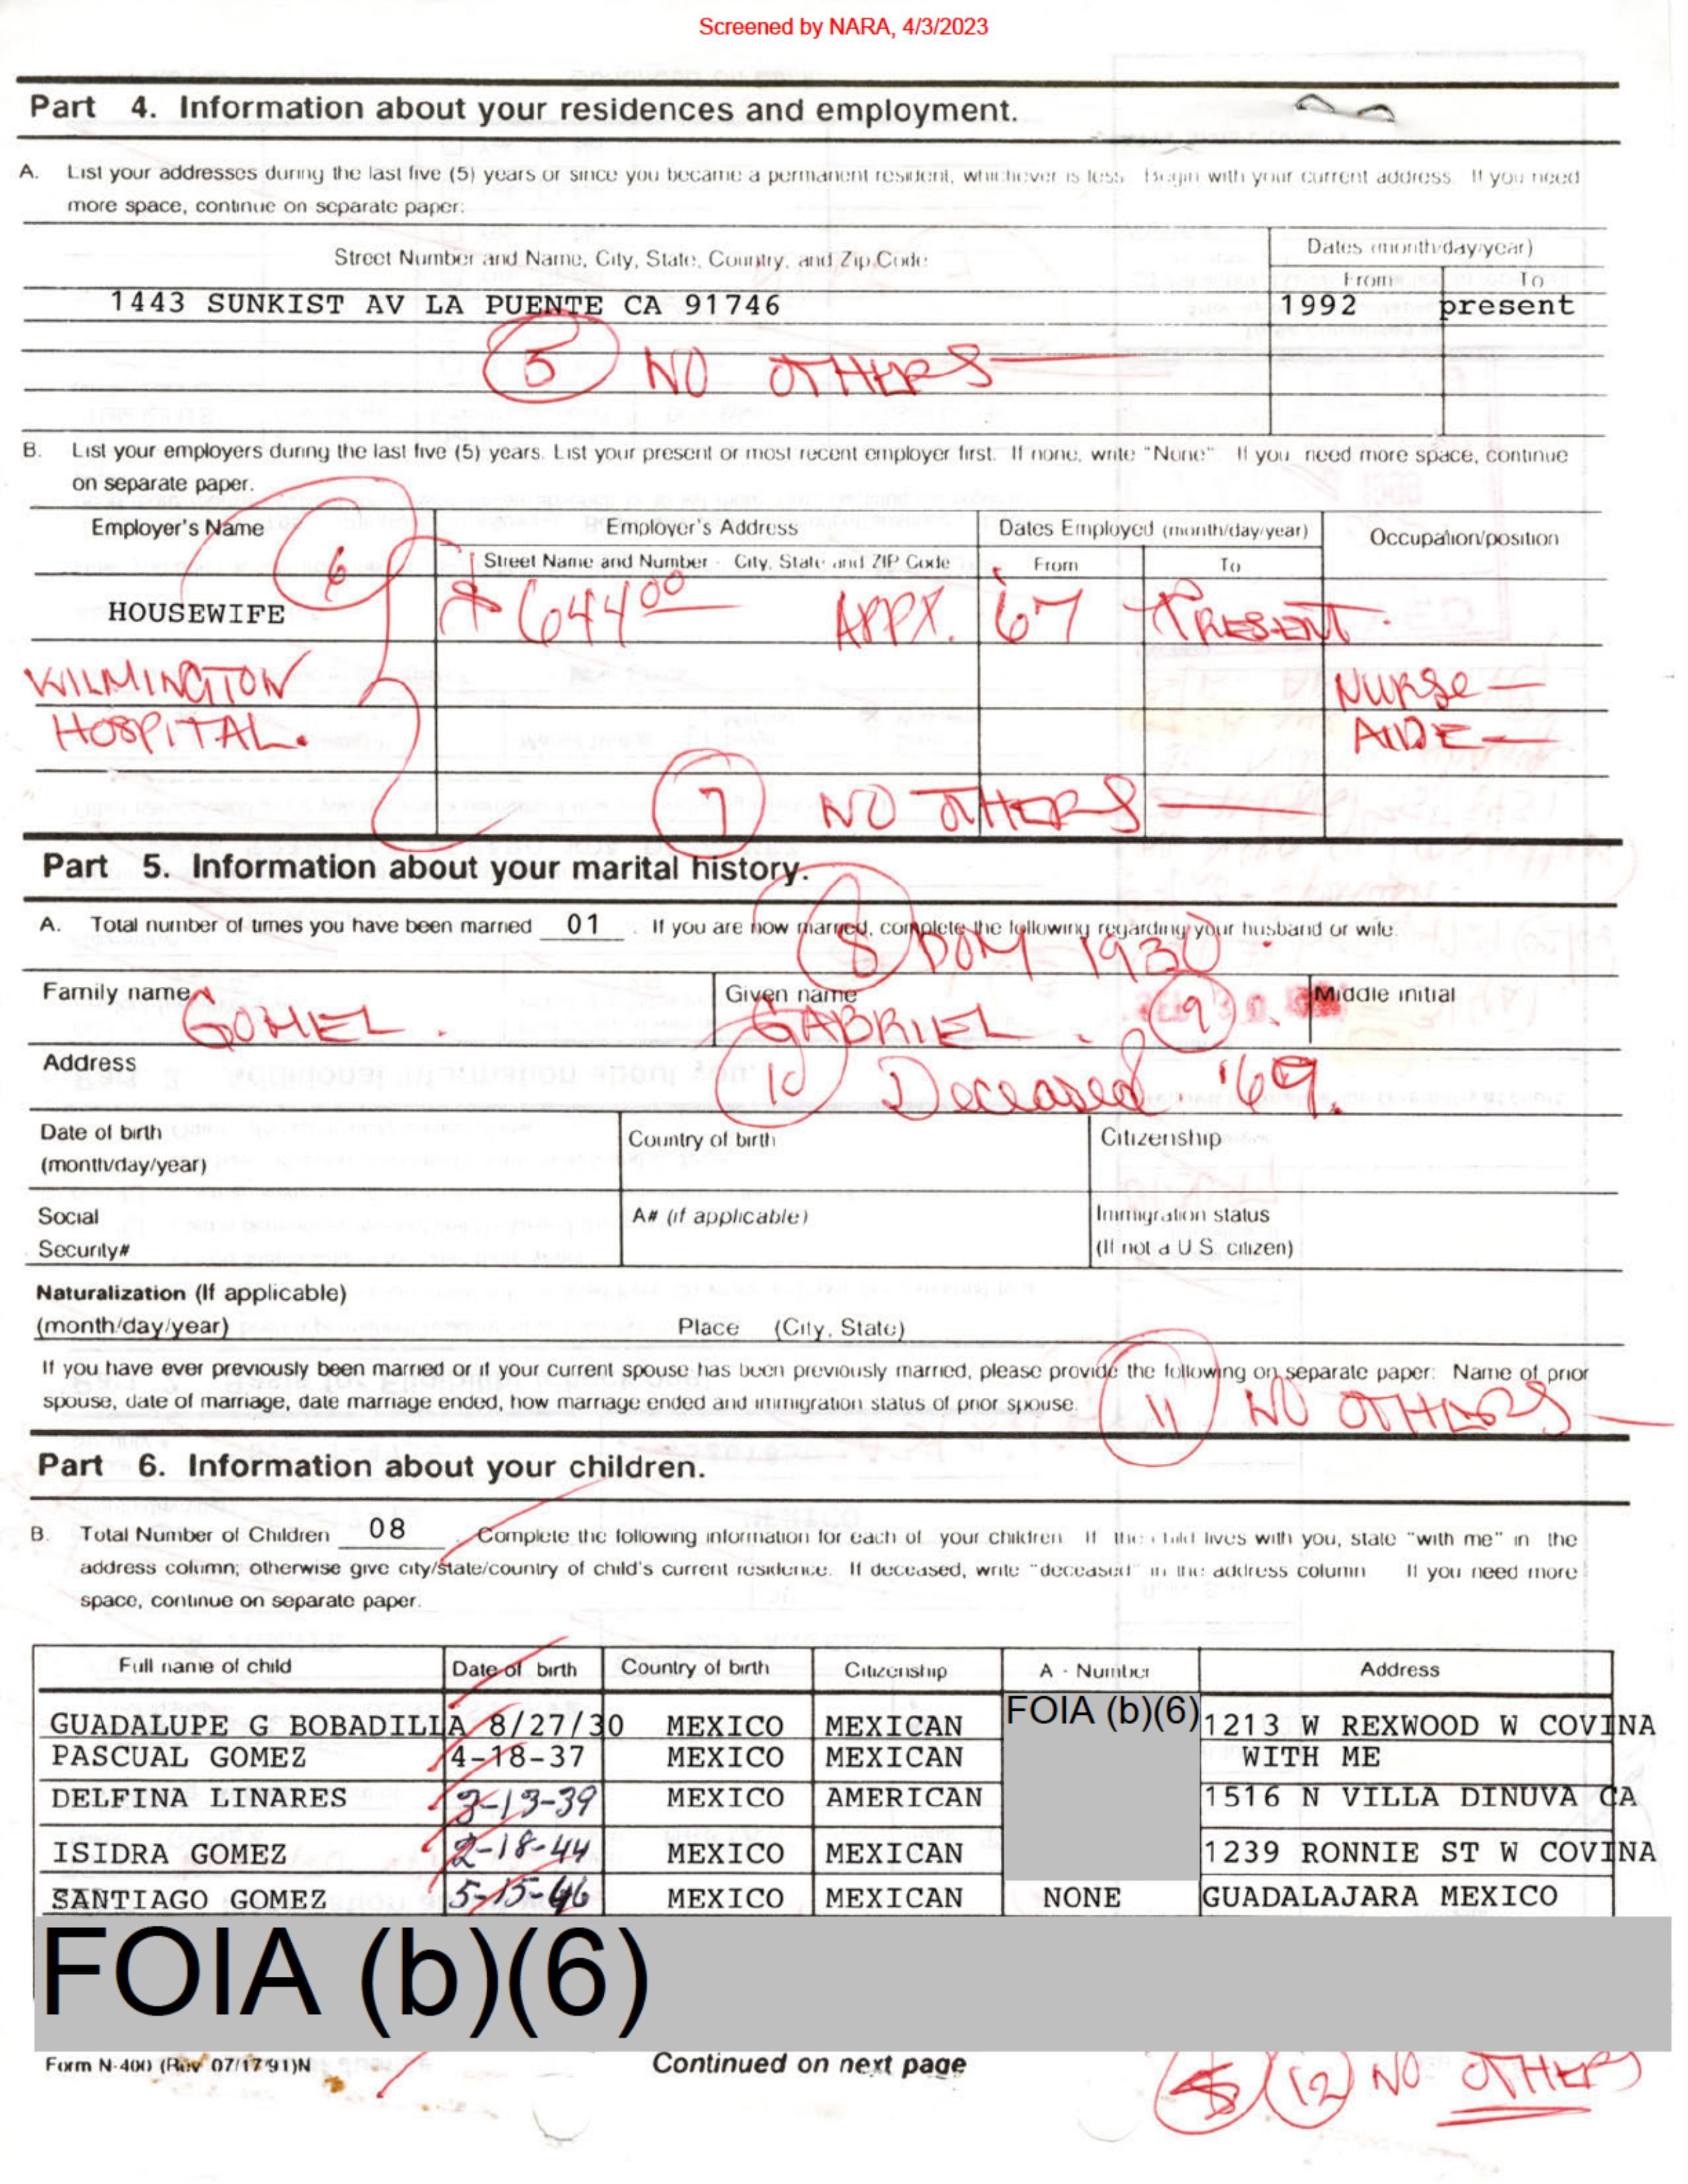 Screened by NARA, 4/3/2023
Part 4. Information about your residences and employment.
A. List your addresses during the last five (5) years or since you became a permanent resident, whichever is less. Begin with your current address. If you need
more space, continue on separate paper:
Street Number and Name, City, State, Country, and Zip Code
Dates (month/day/year)
From To
1443 SUNKIST AV LA PUENTE CA 91746 1992 present
5 NO OTHERS
B. List your employers during the last five (5) years. List your present or most recent employer first. If none, write "None". If you need more space, continue
on separate paper.
Employer's Name Employer's Address Dates Employed (month/day/year) Occupation/position
Street Name and Number - City, State and ZIP Code From To
6
HOUSEWIFE $644.00 APPX. 67 PRESENT.
WILMINGTON Nurse
HOSPITAL. AIDE
7 NO OTHERS
Part 5. Information about your marital history.
A. Total number of times you have been married 01 . If you are now married, complete the following regarding your husband or wife:
8 DOM 1930
Family name Given name Middle initial
GOMEZ. GABRIEL. 9
Address
10 Deceased '69.
Date of birth Country of birth Citizenship
(month/day/year)
Social A# (if applicable) Immigration status
Security# (If not a U.S. citizen)
Naturalization (If applicable)
(month/day/year) Place (City, State)
If you have ever previously been married or if your current spouse has been previously married, please provide the following on separate paper: Name of prior
spouse, date of marriage, date marriage ended, how marriage ended and immigration status of prior spouse.
11 NO OTHERS
Part 6. Information about your children.
B. Total Number of Children 08 . Complete the following information for each of your children. If the child lives with you, state "with me" in the
address column; otherwise give city/state/country of child's current residence. If deceased, write "deceased" in the address column. If you need more
space, continue on separate paper.
Full name of child Date of birth Country of birth Citizenship A - Number Address
GUADALUPE G BOBADILLA 8/27/30 MEXICO MEXICAN FOIA (b)(6) 1213 W REXWOOD W COVINA
PASCUAL GOMEZ 4-18-37 MEXICO MEXICAN WITH ME
DELFINA LINARES 3-13-39 MEXICO AMERICAN 1516 N VILLA DINUVA CA
ISIDRA GOMEZ 2-18-44 MEXICO MEXICAN 1239 RONNIE ST W COVINA
SANTIAGO GOMEZ 5-15-46 MEXICO MEXICAN NONE GUADALAJARA MEXICO
FOIA (b)(6)
Form N-400 (Rev 07/17/91)N Continued on next page
12 NO OTHERS